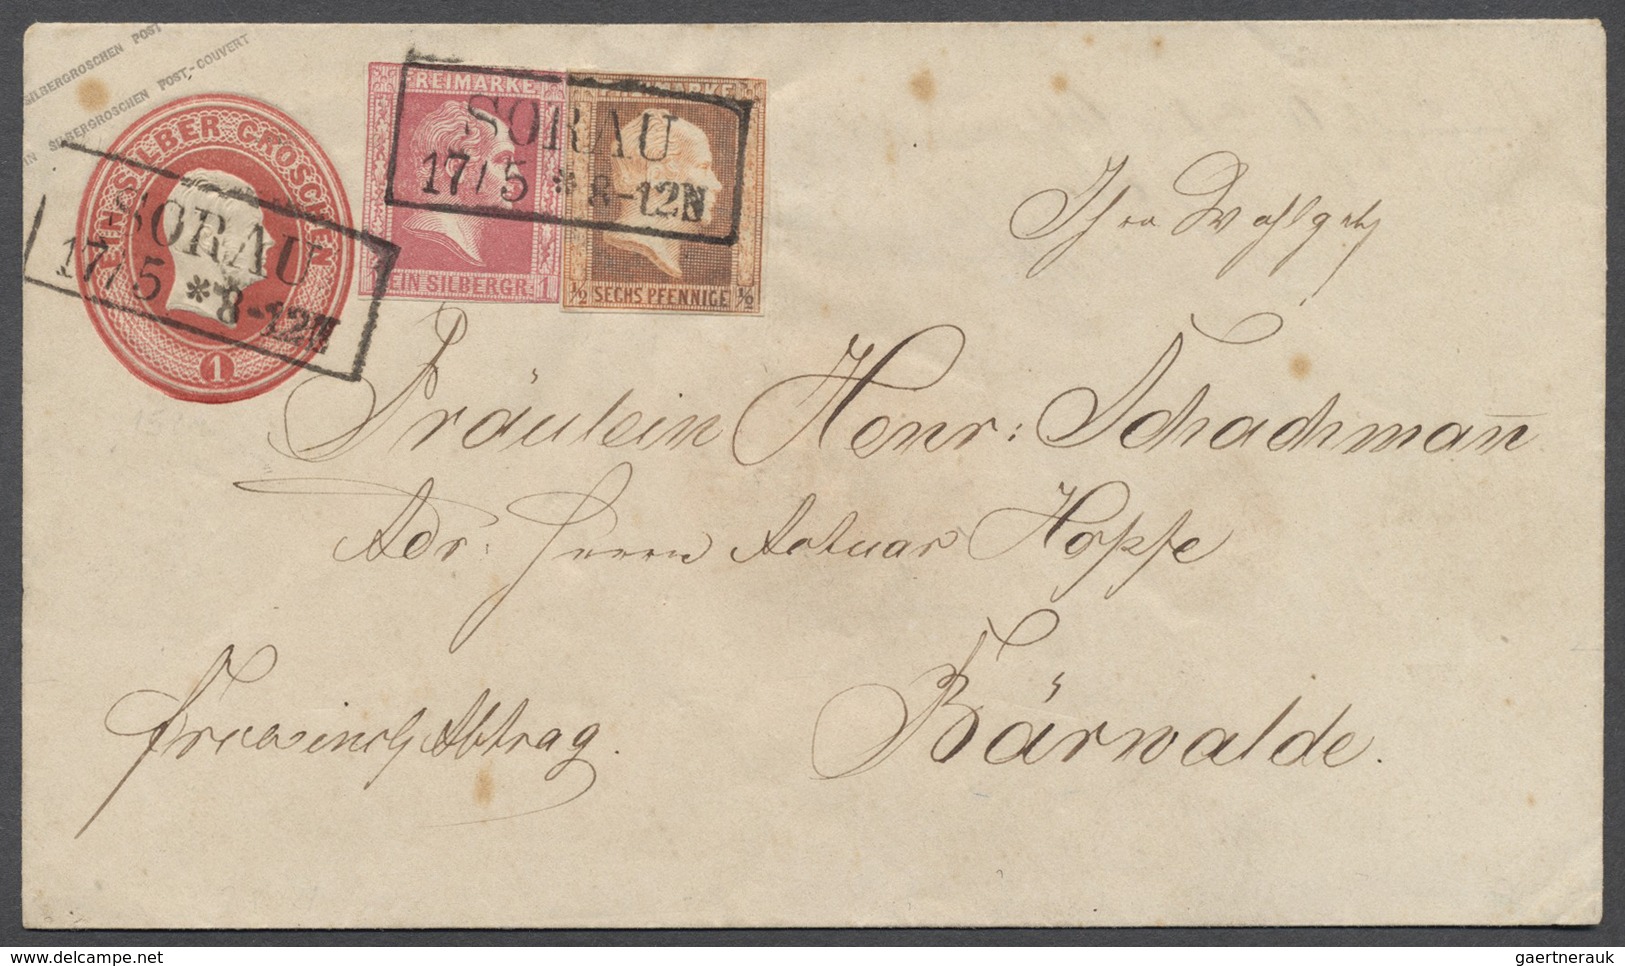 SILBERGROSCHEN POST
IN SILBERGROSCHEN POST-COUVERT
EIN SILBER GROSCHEN
1
SORAU
17/5 * 8-12N
FREIMARKE
EIN SILBERGR. 1
FREIMARKE
½ SECHS PFENNIGE ½
SORAU
17/5 * 8-12N
Fräulein Henr: Schachman̅
Adr: Herrn Actuar Hopfe
Bärwalde.
gaertnerauk